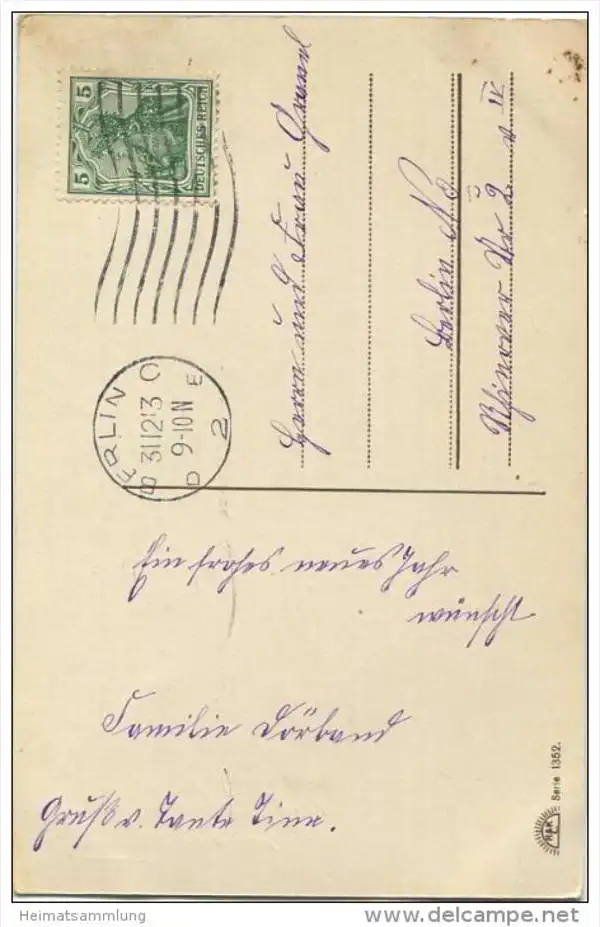 5
5
DEUTSCHES REICH
BERLIN C
31 12 13
9-10 N
2
Herrn und Frau
Berlin NO
Nr 2 v IV
Ein frohes neues Jahr
wünscht
Familie Dörband
Gruß v. Tante Tine.
Serie 1352.
Heimatsammlung
www.delcampe.net